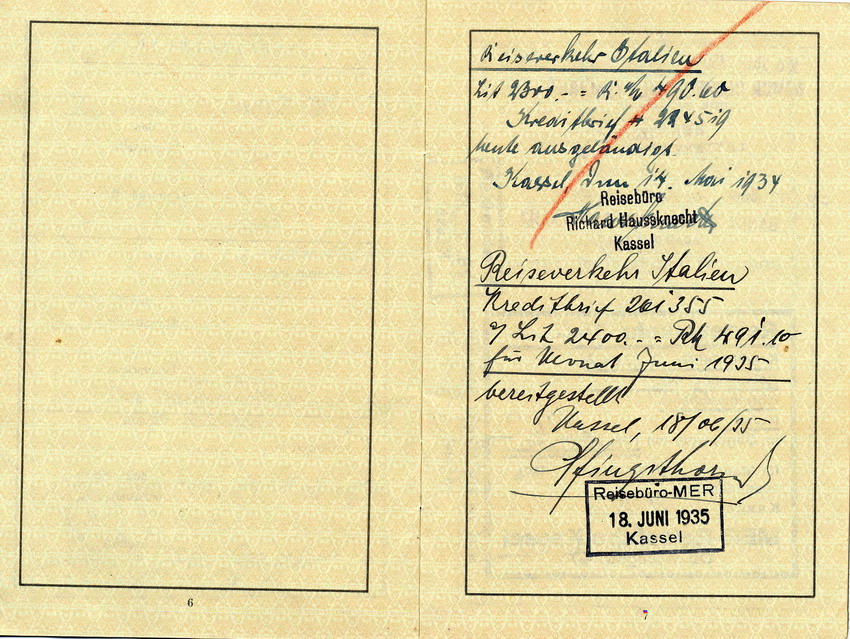 Reiseverkehr Italien
Lit 2300.- = R.M 490.60
Kreditbrief # 224519
heute ausgehändigt.
Kassel, den 14. Mai 1934
Reisebüro
Richard Haussknecht
Kassel
Reiseverkehr Italien
Kreditbrief 261355
Lit 2400.- = RM 491.10
für Monat Juni 1935
bereitgestellt
Kassel, 18/06/35
Pfingsthorn
Reisebüro-MER
18. JUNI 1935
Kassel
6
7